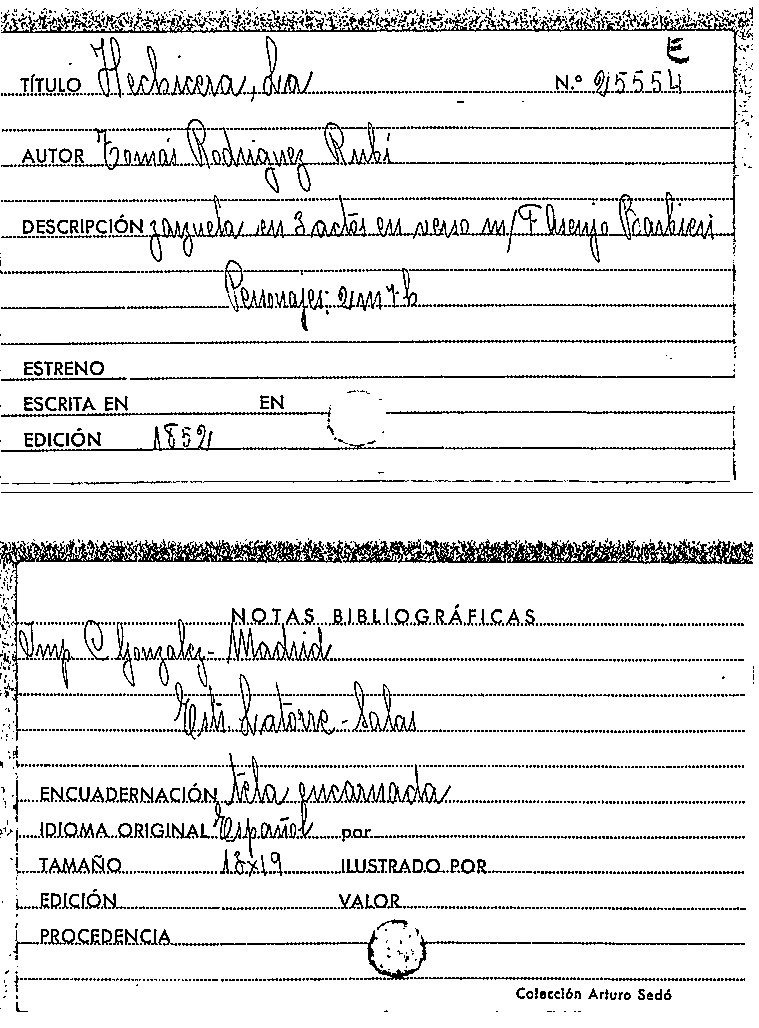 E
TÍTULO Hechicera, La N.º 25554
AUTOR Tomás Rodriguez Rubí
DESCRIPCIÓN zarzuela en 3 actos en verso m/ F Asenjo Barbieri
Personajes: 2m 7h
ESTRENO
ESCRITA EN EN
EDICIÓN 1852
NOTAS BIBLIOGRÁFICAS
Imp C Gonzalez - Madrid
Latorre - Salas
ENCUADERNACIÓN tela encarnada
IDIOMA ORIGINAL Español por
TAMAÑO 13x19 ILUSTRADO POR
EDICIÓN VALOR
PROCEDENCIA
Colección Arturo Sedó